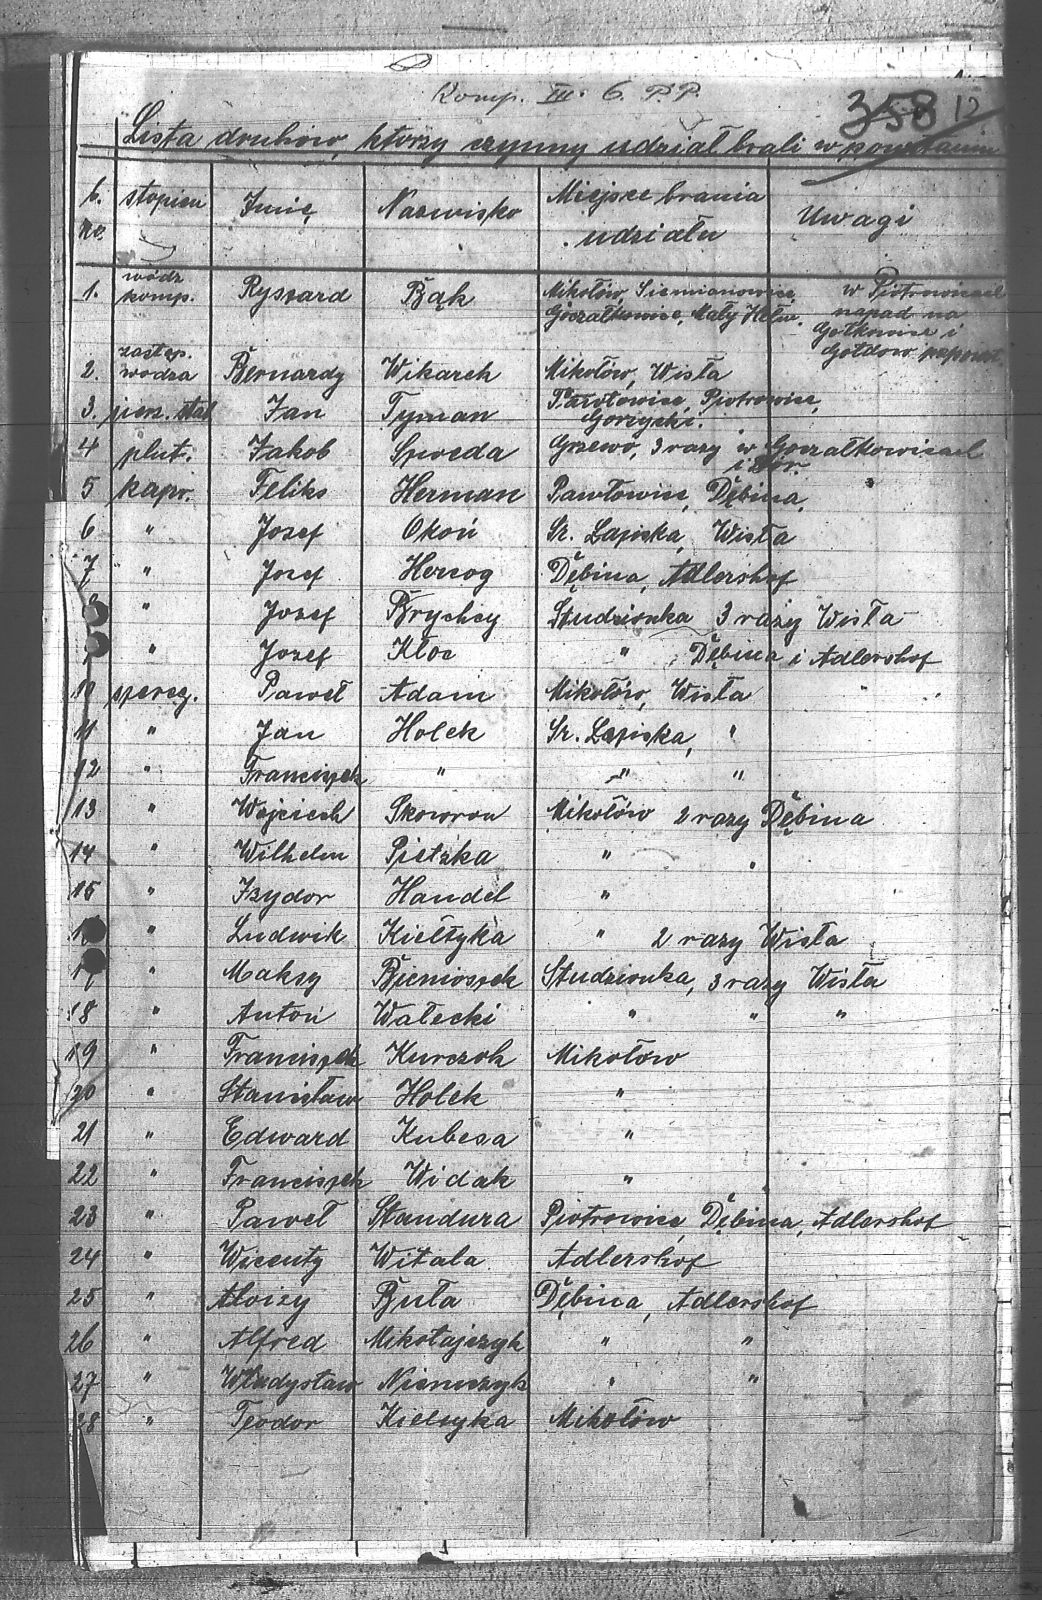 Komp. III. 6. P.P.
358 12
Lista druhów, którzy czynny udział brali w powstaniu
b. no. stopien Imię Nazwisko Miejsce brania udziału Uwagi
1. wódz komp. Ryszard Bąk Mikołów, Siemianowice, Goczałkowice, Mały w Piotrowicach napad na Gołkowice i
2. zastęp. wodza Bernardy Wikarek Mikołów, Wisła
3. Jan Tyman Pawłowice, Piotrowice, Gorzycki.
4 plut. Jakob Szweda 3 razy w Goczałkowicach
5 kapr. Feliks Herman Pawłowice, Dębina,
6 " Jozef Okoń Sr. Łaziska, Wisła
7 " Jozef Herzog Dębina, Adlershof
" Jozef Brychcy Studzionka 3 razy Wisła
" Jozef Kloc " , Dębina i Adlershof
10 szereg. Paweł Adam Mikołów, Wisła
11 " Jan Holek Sr. Łaziska, "
12 " Franciszek " " "
13 " Wojciech Skowron Mikołów 2 razy Dębina
14 " Wilhelm Pietzka " "
15 " Izydor Handel "
" Ludwik Kiełtyka " 2 razy Wisła
17 " Maksy Bienioszek Studzionka, 3 razy Wisła
18 " Anton Wałecki " " "
19 " Franciszek Kurczok Mikołów
20 " Stanisław Holek "
21 " Edward Kubesa "
22 " Franciszek Widak "
23 " Paweł Standura Piotrowice, Dębina, Adlershof
24 " Wicenty Witala Adlershof
25 " Aloizy Buła Dębina, Adlershof
26 " Alfred Mikołajczyk " "
27 " Władysław Niemczyk " "
28 " Teodor Kieltyka Mikołów